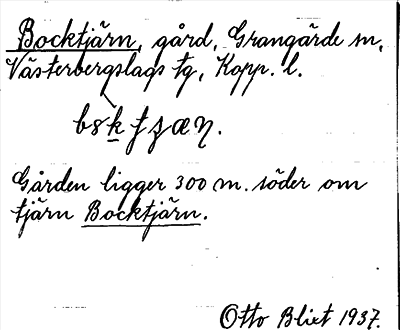 Bocktjärn, gård, Grangärde sn,
Västerbergslags tg, Kopp. l.
Gården ligger 300 m. söder om
tjärn Bocktjärn.
Otto Blixt 1937.